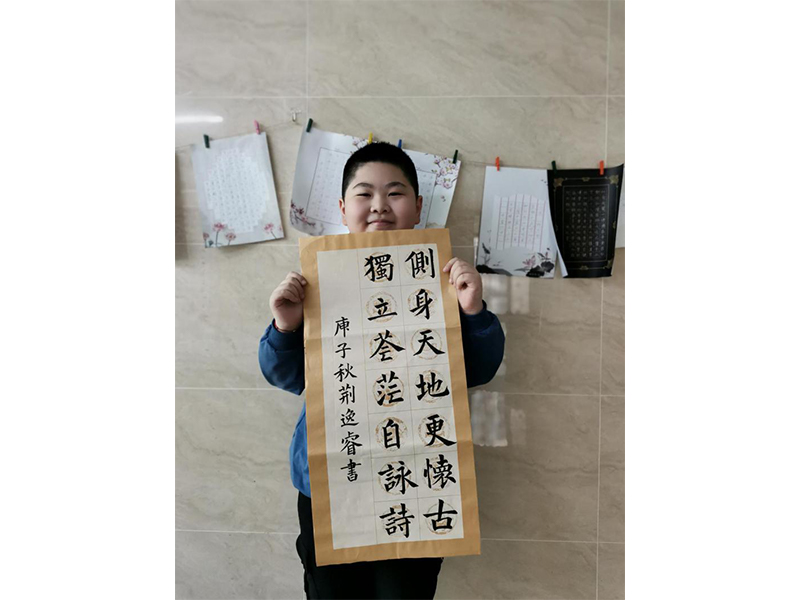 側身天地更懷古
獨立荃茫自詠詩
庚子秋荆逸睿書